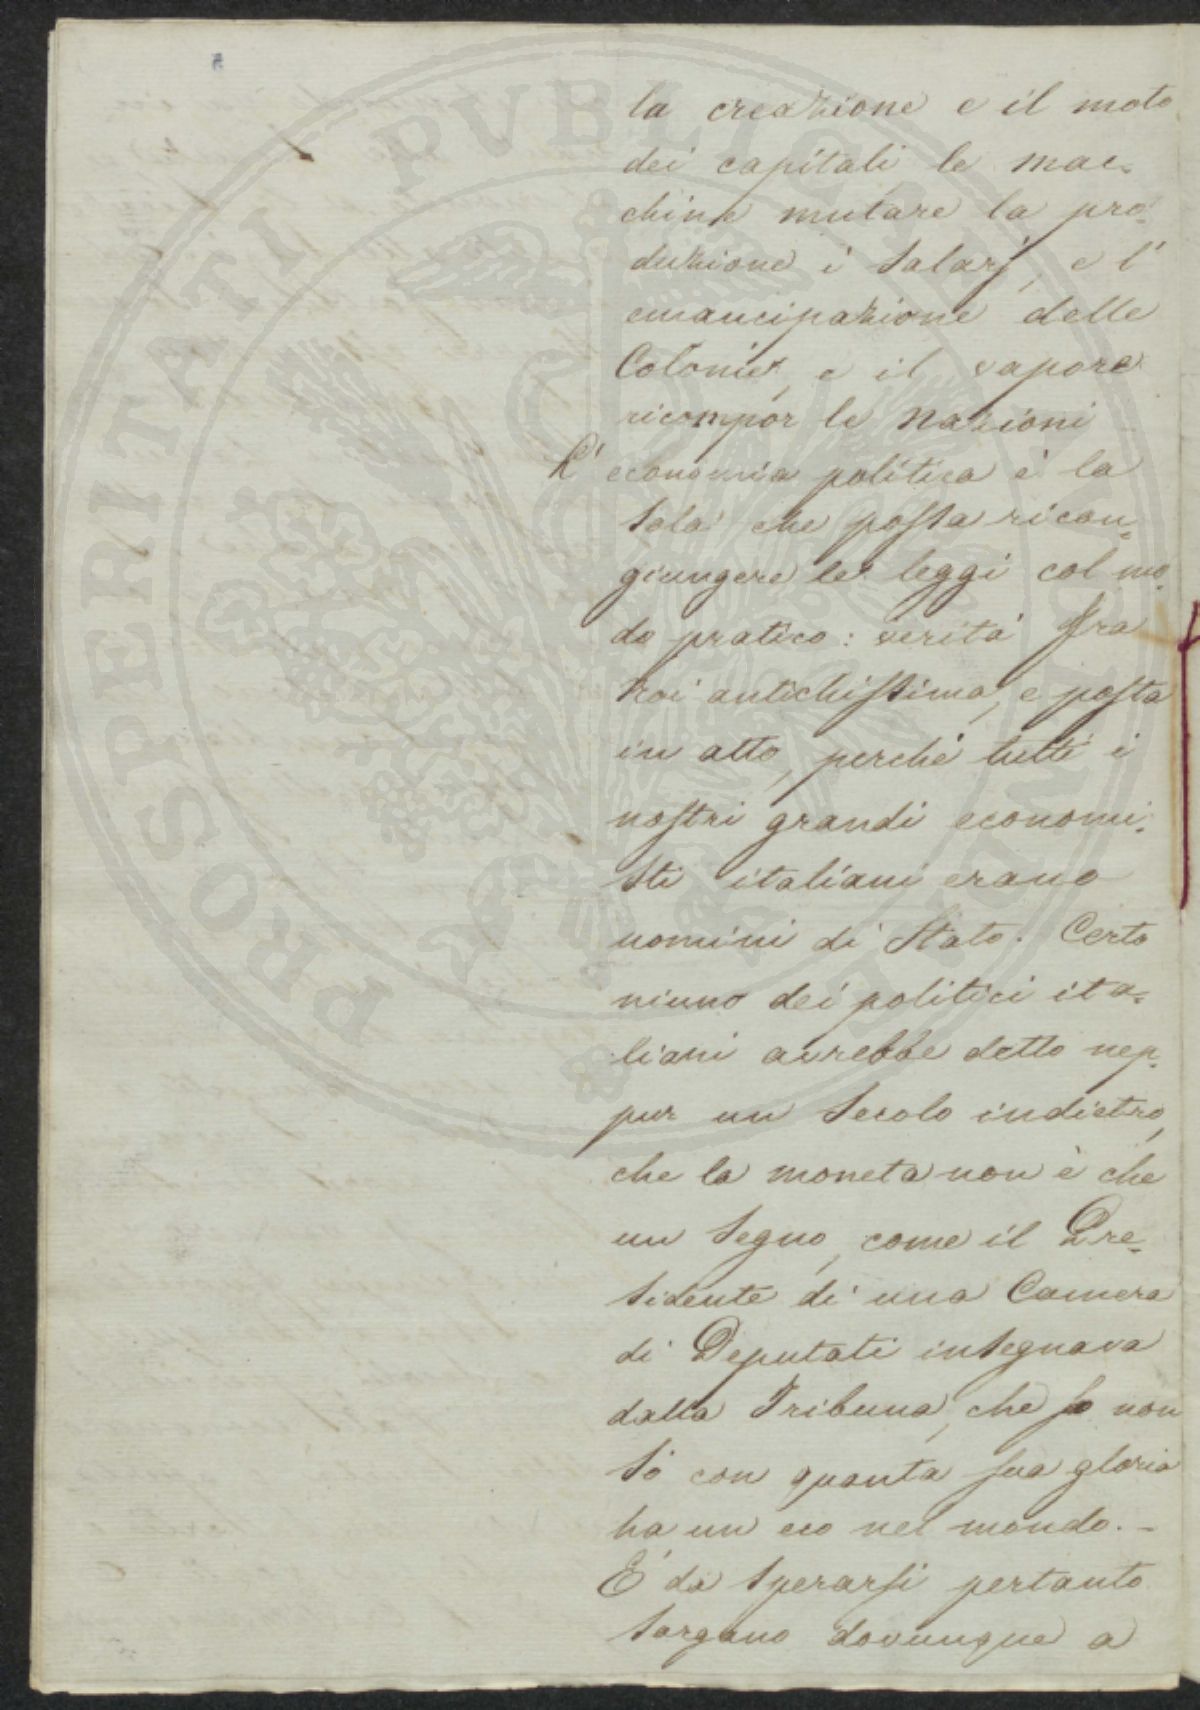 la creazione e il moto
dei capitali le mac-
chine mutare la pro-
duzione i salarj, e l'
emancipazione delle
Colonie, e il vapore
ricompor le Nazioni
L'economia politica è la
sola che possa ricon-
giungere le leggi col mo-
do pratico: verità fra
noi antichissima, e posta
in atto, perchè tutti i
nostri grandi economi-
sti italiani erano
uomini di Stato. Certo
niuno dei politici ita-
liani avrebbe detto nep-
pur un secolo indietro,
che la moneta non è che
un segno, come il Pre-
sidente di una Camera
di Deputati insegnava
dalla Tribuna, che non
sò con quanta sua gloria
ha un eco nel mondo. -
E' da sperarsi pertanto
sorgano dovunque a
PROSPERITATI PVBLICAE AVGENDAE